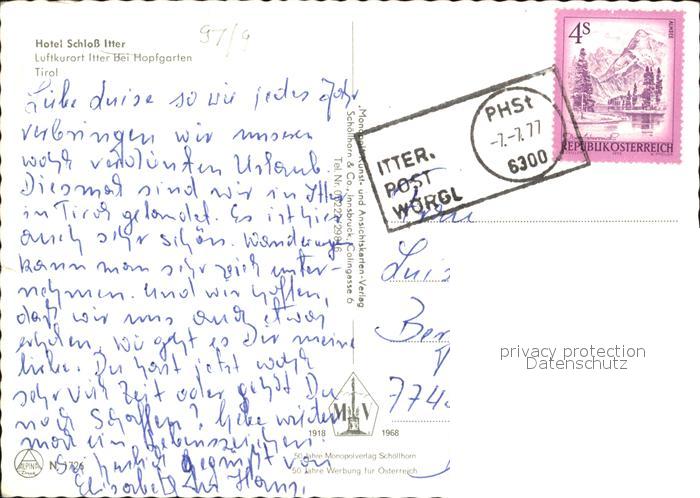 Hotel Schloß Itter
Luftkurort Itter bei Hopfgarten
Tirol
97/9
Liebe Luise so wie jedes Jahr
verbringen wir unseren
wohl verdienten Urlaub.
Diesmal sind wir in Itter
in Tirol gelandet. Es ist hier
auch sehr schön. Wanderungen
kann man sehr reich unter-
nehmen. Und wir hoffen,
daß wir uns auch etwas
erholen. Wie geht es Dir meine
liebe. Du hast jetzt wohl
sehr viel Zeit oder gehst Du
noch Schaffen? Gebe wieder
mal ein Lebenszeichen.
Sei herzlich gegrüßt von
Elisabeth und Hans
ALPINA
Druck
Monopol-Kunst- und Ansichtskarten-Verlag
Schöllhorn & Co., Innsbruck, Colingasse 6
MV
1918 1968
50 Jahre Monopolverlag Schöllhorn
50 Jahre Werbung für Österreich
4S
ALMSEE
REPUBLIK ÖSTERREICH
PHSt
-7.-7.77
6300
ITTER.
POST
WÖRGL
Frau
Luis
Ber
774
privacy protection
Datenschutz